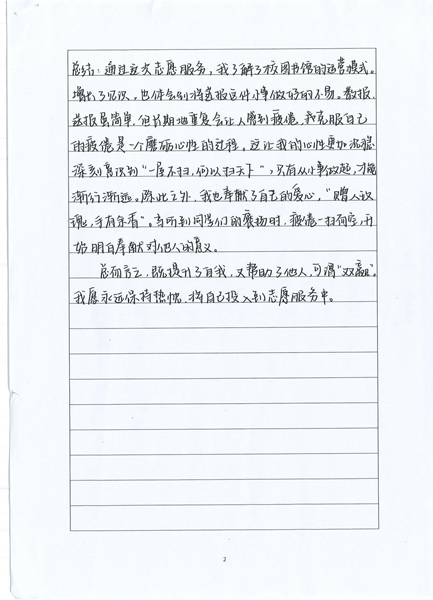 总结：通过这次志愿服务，我了解了校图书馆的运营模式。
增长了见识，也体会到将送报这件小事做好的不易。数报，
送报虽简单，但长期地重复会让人感到疲倦，我克服自己
的疲倦是一个磨砺心性的过程。这让我的心性更加沉稳
深刻意识到"一屋不扫，何以扫天下"，只有从小事做起，才能
渐行渐远。除此之外，我也奉献了自己的爱心，"赠人玫
瑰，手有余香"。当听到同学们的褒扬时，疲倦一扫而空，开
始明白奉献对他人的意义。
总而言之，既提升了自我，又帮助了他人，可谓"双赢"。
我愿永远保持热忱，将自己投入到志愿服务中。
2